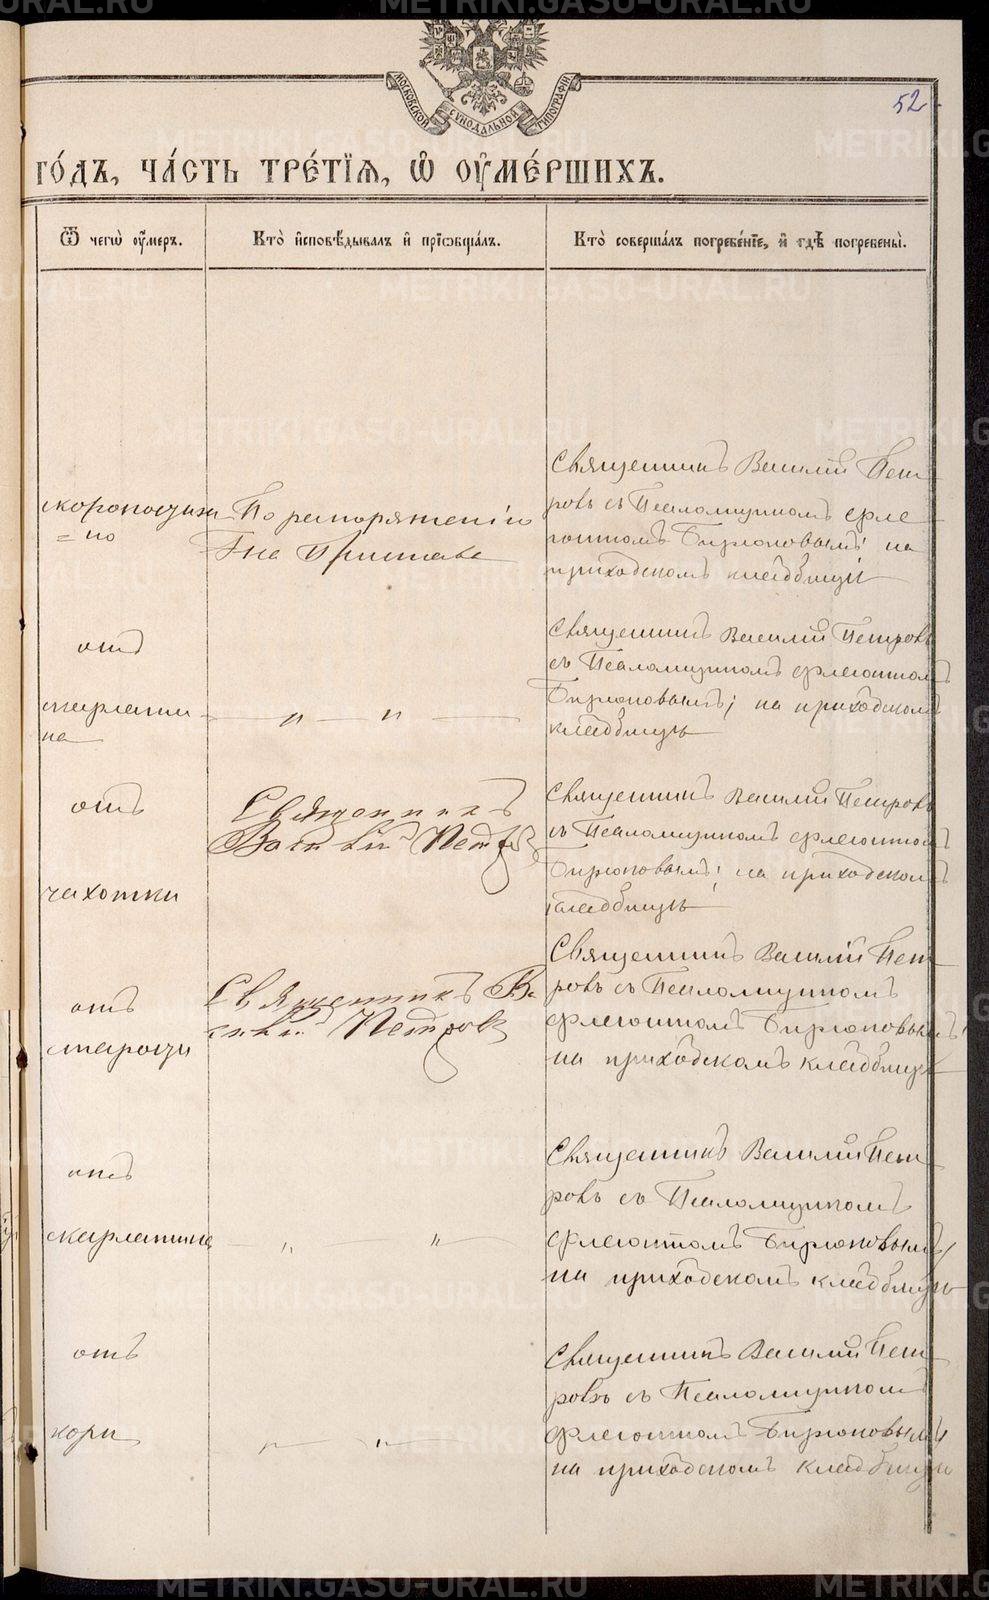 МОСКОВСКОЙ СѴНОДАЛЬНОЙ ТИПОГРАФІИ
52
ГО́ДЪ, ЧА́СТЬ ТРЕ́ТІЯ, Ѡ҆ ОУ҆МЕ́РШИХЪ.
Ѿ чегѡ̀ оу҆́меръ.
Кто̀ и҆сповѣ́дывалъ и҆ прїѡбща́лъ.
Кто̀ соверша́лъ погребе́нїе, и҆ гдѣ̀ погребены̀.
скоропостиж
= но
По распоряженію
Г-на Пристава
Священникъ Василій Пет
ровъ съ Псаломщикомъ Фле
гонтомъ Бирюковымъ; на
приходскомъ кладбищѣ
отъ
скарлати
на
— " — " —
Священникъ Василій Петровъ
съ Псаломщикомъ Флегонтомъ
Бирюковымъ; на приходскомъ
кладбищѣ
отъ
чахотки
Священникъ
Василій Петровъ
Священникъ Василій Петровъ
съ Псаломщикомъ Флегонтомъ
Бирюковымъ; на приходскомъ
кладбищѣ
отъ
старости
Священникъ Ва
силій Петровъ
Священникъ Василій Пет
ровъ съ Псаломщикомъ
Флегонтомъ Бирюковымъ;
на приходскомъ кладбищѣ
отъ
скарлатины
— " " —
Священникъ Василій Пет
ровъ съ Псаломщикомъ
Флегонтомъ Бирюковымъ;
на приходскомъ кладбищѣ
отъ
кори
— " — " —
Священникъ Василій Пет
ровъ съ Псаломщикомъ
Флегонтомъ Бирюковымъ
на приходскомъ кладбищѣ
METRIKI.GASO-URAL.RU